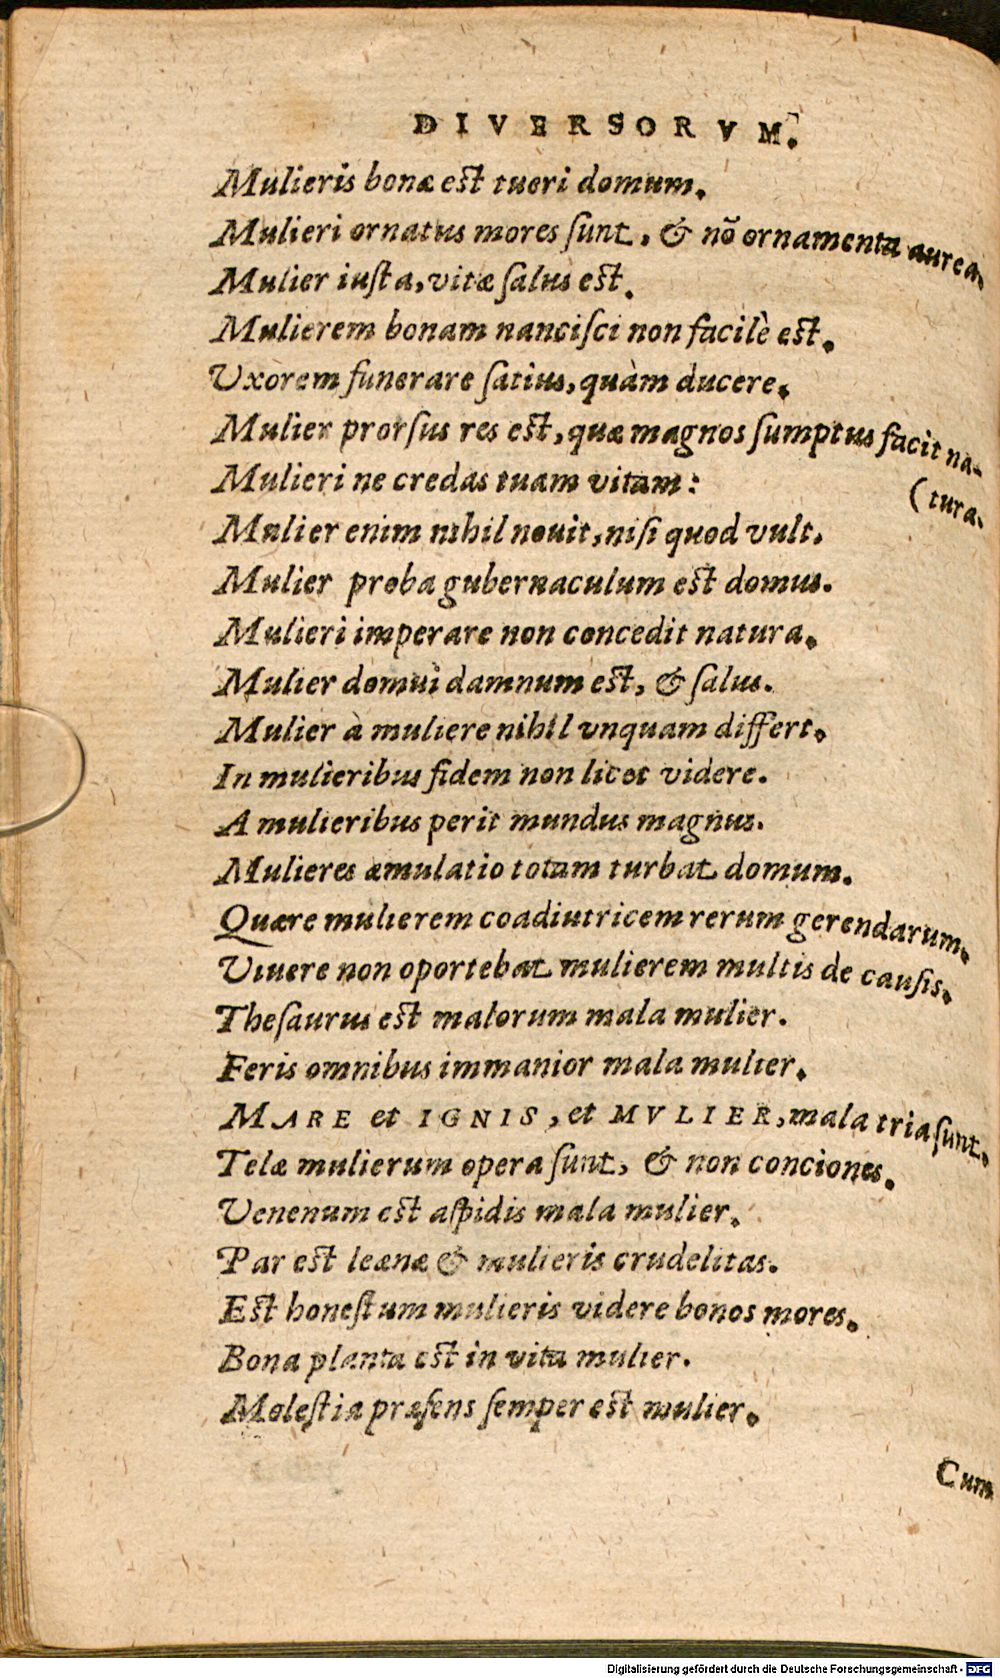 DIVERSORVM.
Mulieris bonæ est tueri domum.
Mulieri ornatus mores ſunt, & nõ ornamenta aurea.
Mulier iuſta, vitæ ſalus est.
Mulierem bonam nanciſci non facilè est.
Uxorem funerare ſatius, quàm ducere.
Mulier prorſus res est, quæ magnos ſumptus facit na-
(tura.
Mulieri ne credas tuam vitam:
Mulier enim nihil nouit, niſi quod vult.
Mulier proba gubernaculum est domus.
Mulieri imperare non concedit natura.
Mulier domui damnum est, & ſalus.
Mulier à muliere nihil vnquam differt.
In mulieribus fidem non licet videre.
A mulieribus perit mundus magnus.
Mulieres æmulatio totam turbat domum.
Quære mulierem coadiutricem rerum gerendarum.
Uiuere non oportebat mulierem multis de cauſis.
Theſaurus est malorum mala mulier.
Feris omnibus immanior mala mulier.
MARE et IGNIS, et MVLIER, mala tria ſunt.
Telæ mulierum opera ſunt, & non conciones.
Venenum est aſpidis mala mulier.
Par est leænæ & mulieris crudelitas.
Est honeſtum mulieris videre bonos mores.
Bona planta est in vita mulier.
Moleſtia præſens ſemper est mulier.
Cum
Digitalisierung gefördert durch die Deutsche Forschungsgemeinschaft - DFG